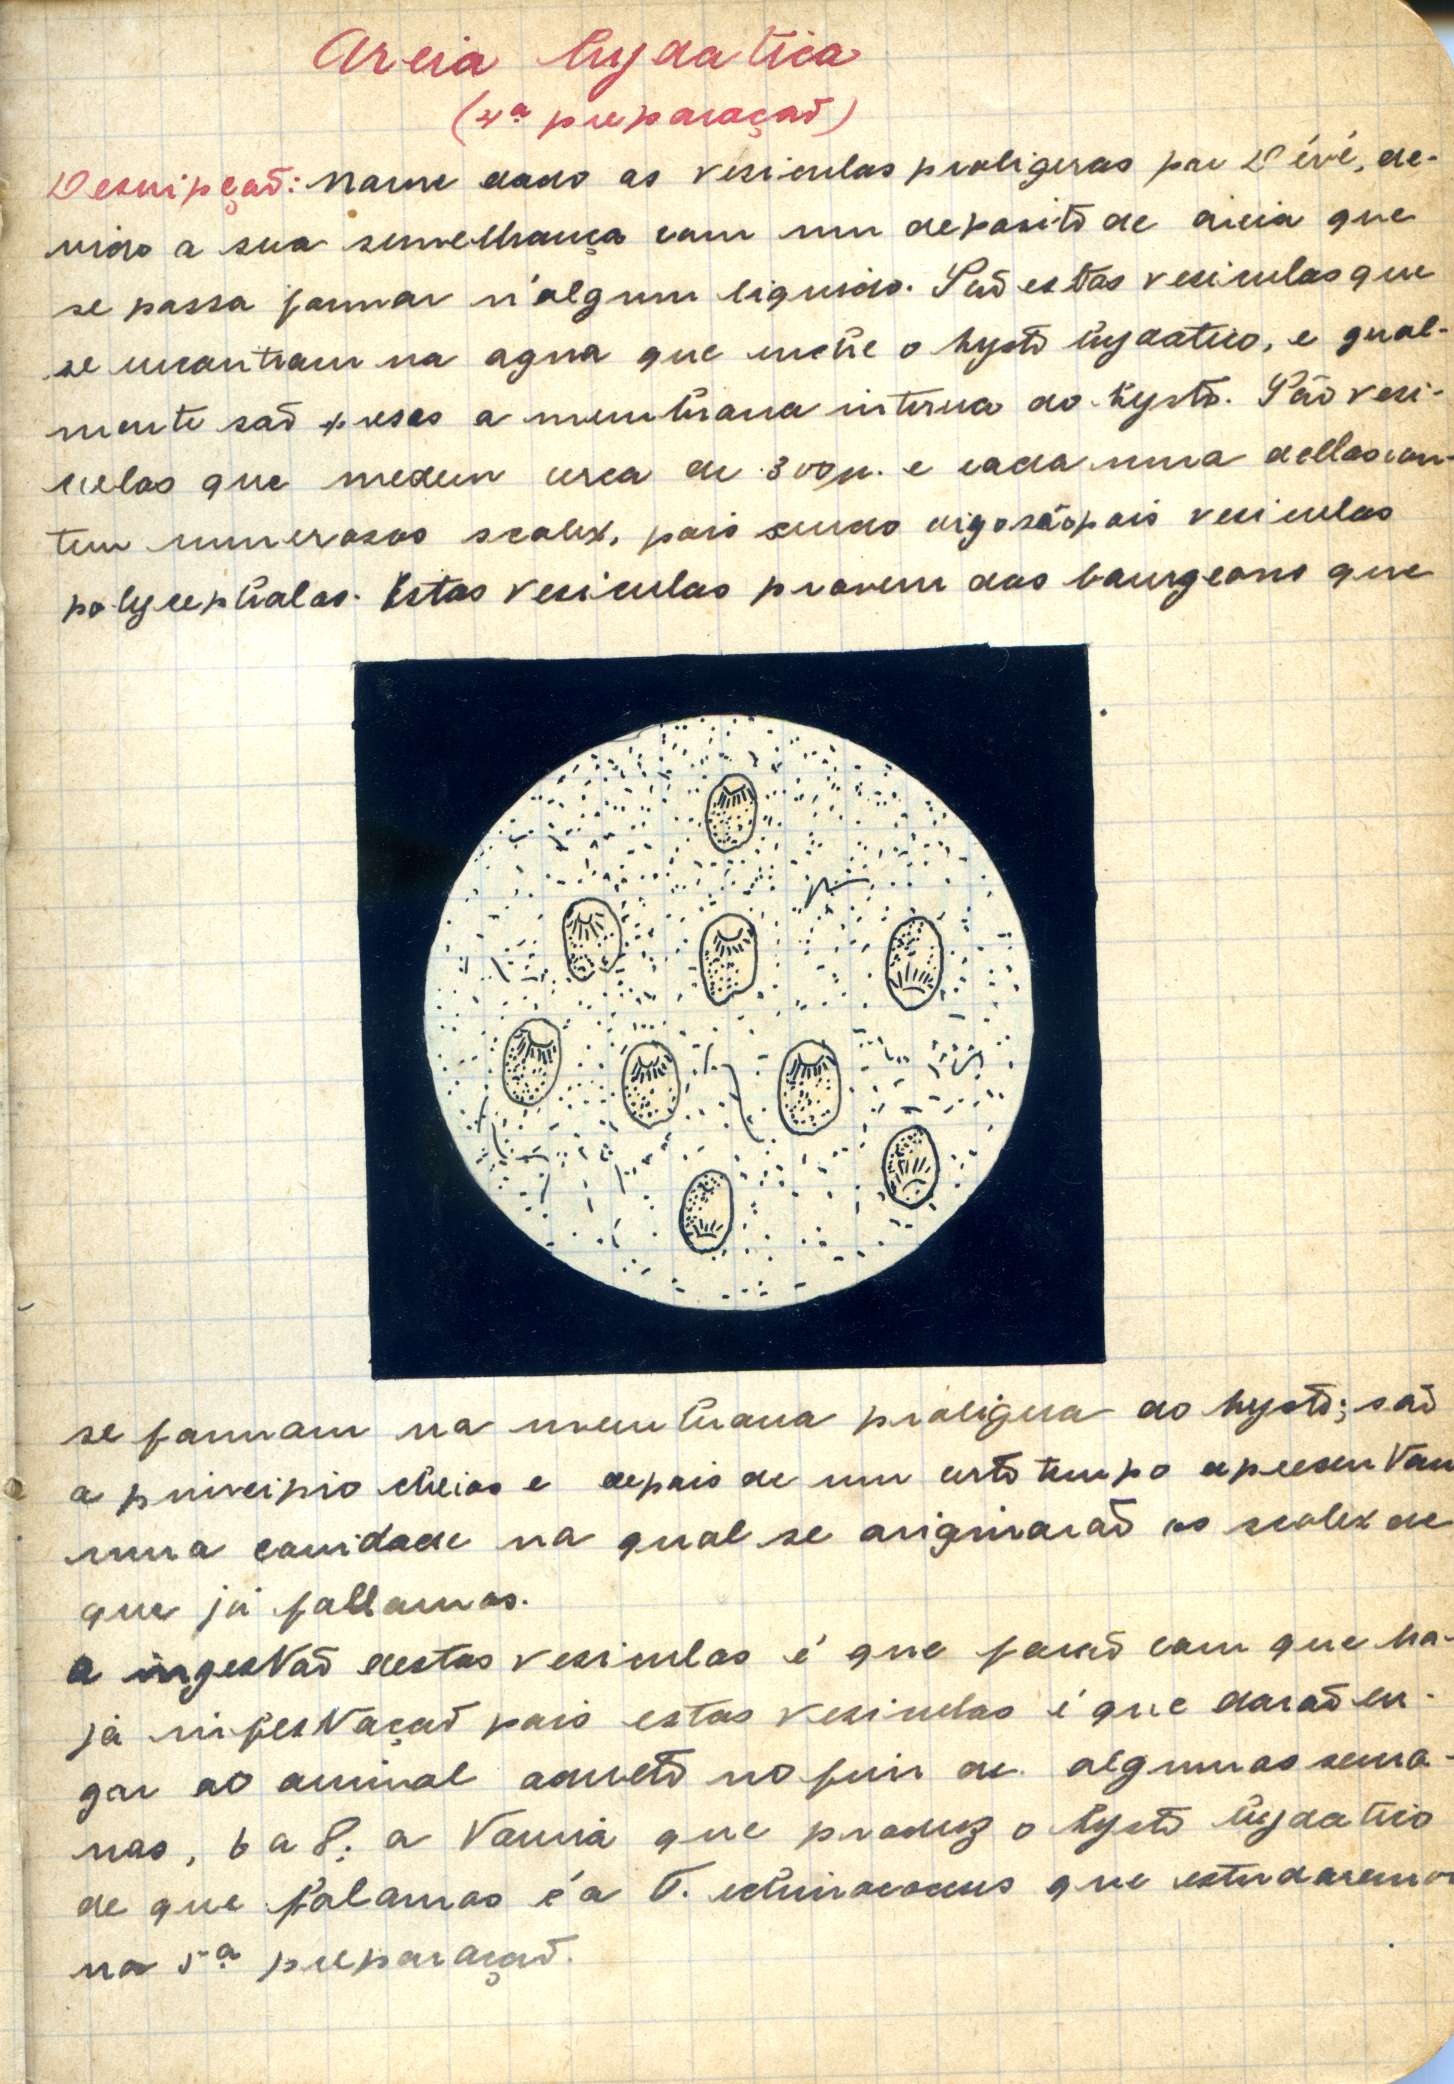 Areia hydatica
(4ª preparação)
Descripção: Nome dado as vesiculas proligeras por Dévé, de-
vido a sua semelhança com um deposito de areia que
se possa formar n'algum liquido. São estas vesiculas que
se encontram na agua que enche o kysto hydatico, e gual-
mente são presas a membrana interna do kysto. São vesi-
culas que medem cerca de 300µ. e cada uma dellas con-
tem numerosos scolex, pois sendo pois vesiculas
polycephalas. Estas vesiculas provem dos bourgeons que
se formam na membrana proligera do kysto; são
a principio cheias e depois de um certo tempo apresentam
uma cavidade na qual se originarão os scolex de
que já fallamos.
a ingestão destas vesiculas é que farão com que ha-
ja infestação pois estas vesiculas é que darão lu-
gar ao animal adulto no fim de algumas sema-
nas, 6 a 8; a tænia que produz o kysto hydatico
de que falamos é a T. echinococcus que estudaremos
na 5ª preparação.